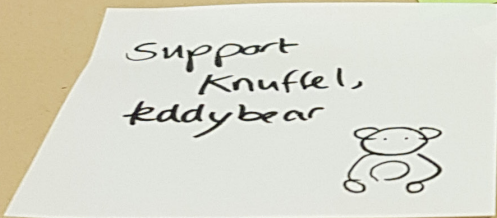 Support
Knuffel,
teddybear